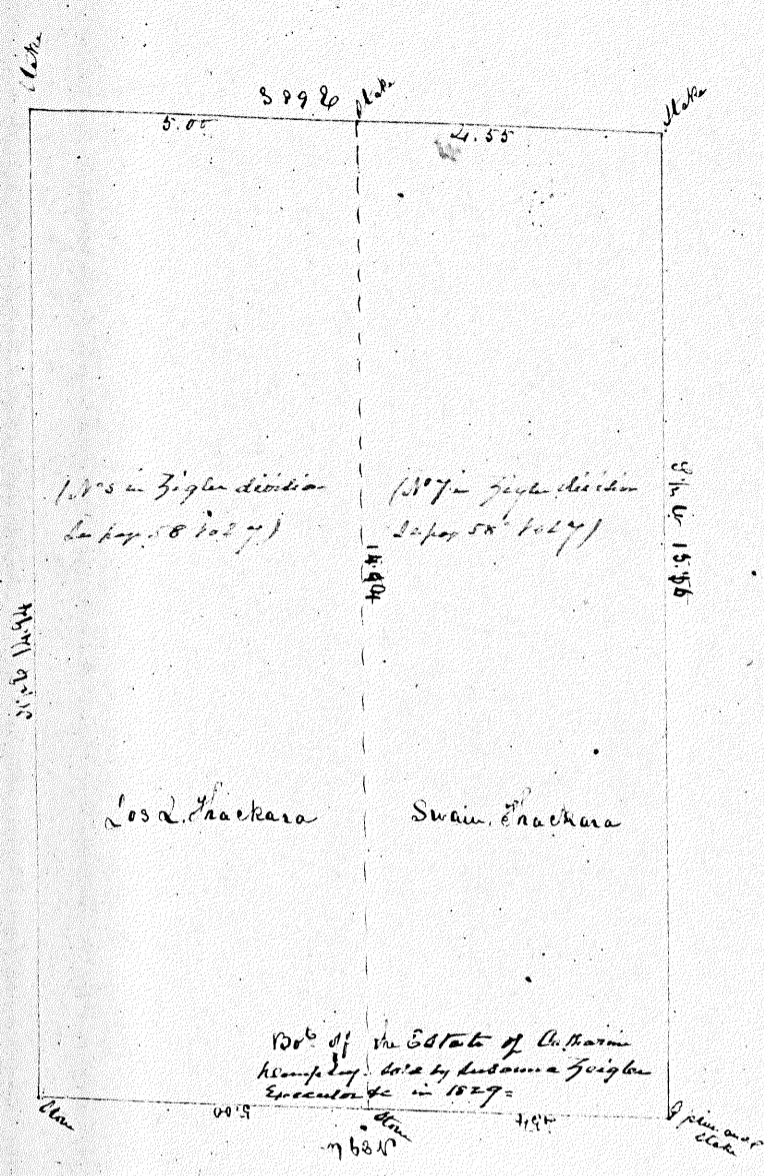 Stake
S 89 E
Stake
Stake
5.00
4.55
(No 5 in Zigler division
See pag 58 Vol 7)
(No 7 in Zigler division
See pag 58 Vol 7)
14.94
15.56
14.94
Jos L. Thackara
Swain Thackara
Bot of the Estate of Catharine
sold by Susanna Zeigler
Executor &c in 1829
Stone
5.00
Stone
Stake
N 89 W